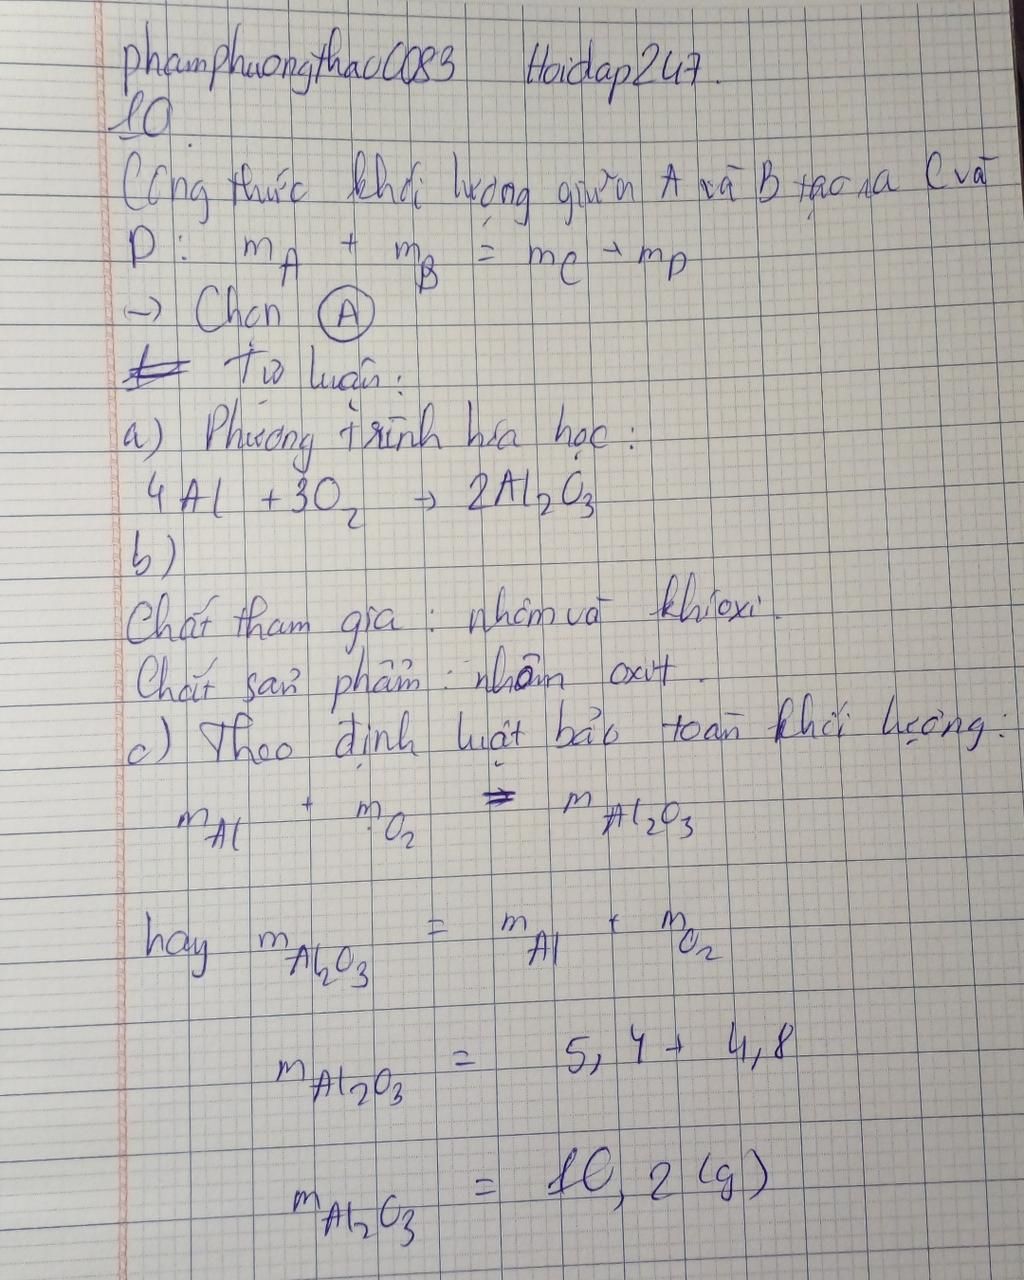 phamphuongthao0083 Hoidap247.
10.
Công thức khối lượng giữa A và B tạo ra C và
D: mA + mB = mC + mD
-> Chọn (A)
Tự luận:
a) Phương trình hóa học:
4Al + 3O2 -> 2Al2O3
b)
Chất tham gia: nhôm và khí oxi.
Chất sản phẩm: nhôm oxit.
c) Theo định luật bảo toàn khối lượng:
mAl + mO2 = mAl2O3
hay mAl2O3 = mAl + mO2
mAl2O3 = 5,4 + 4,8
mAl2O3 = 10,2 (g)